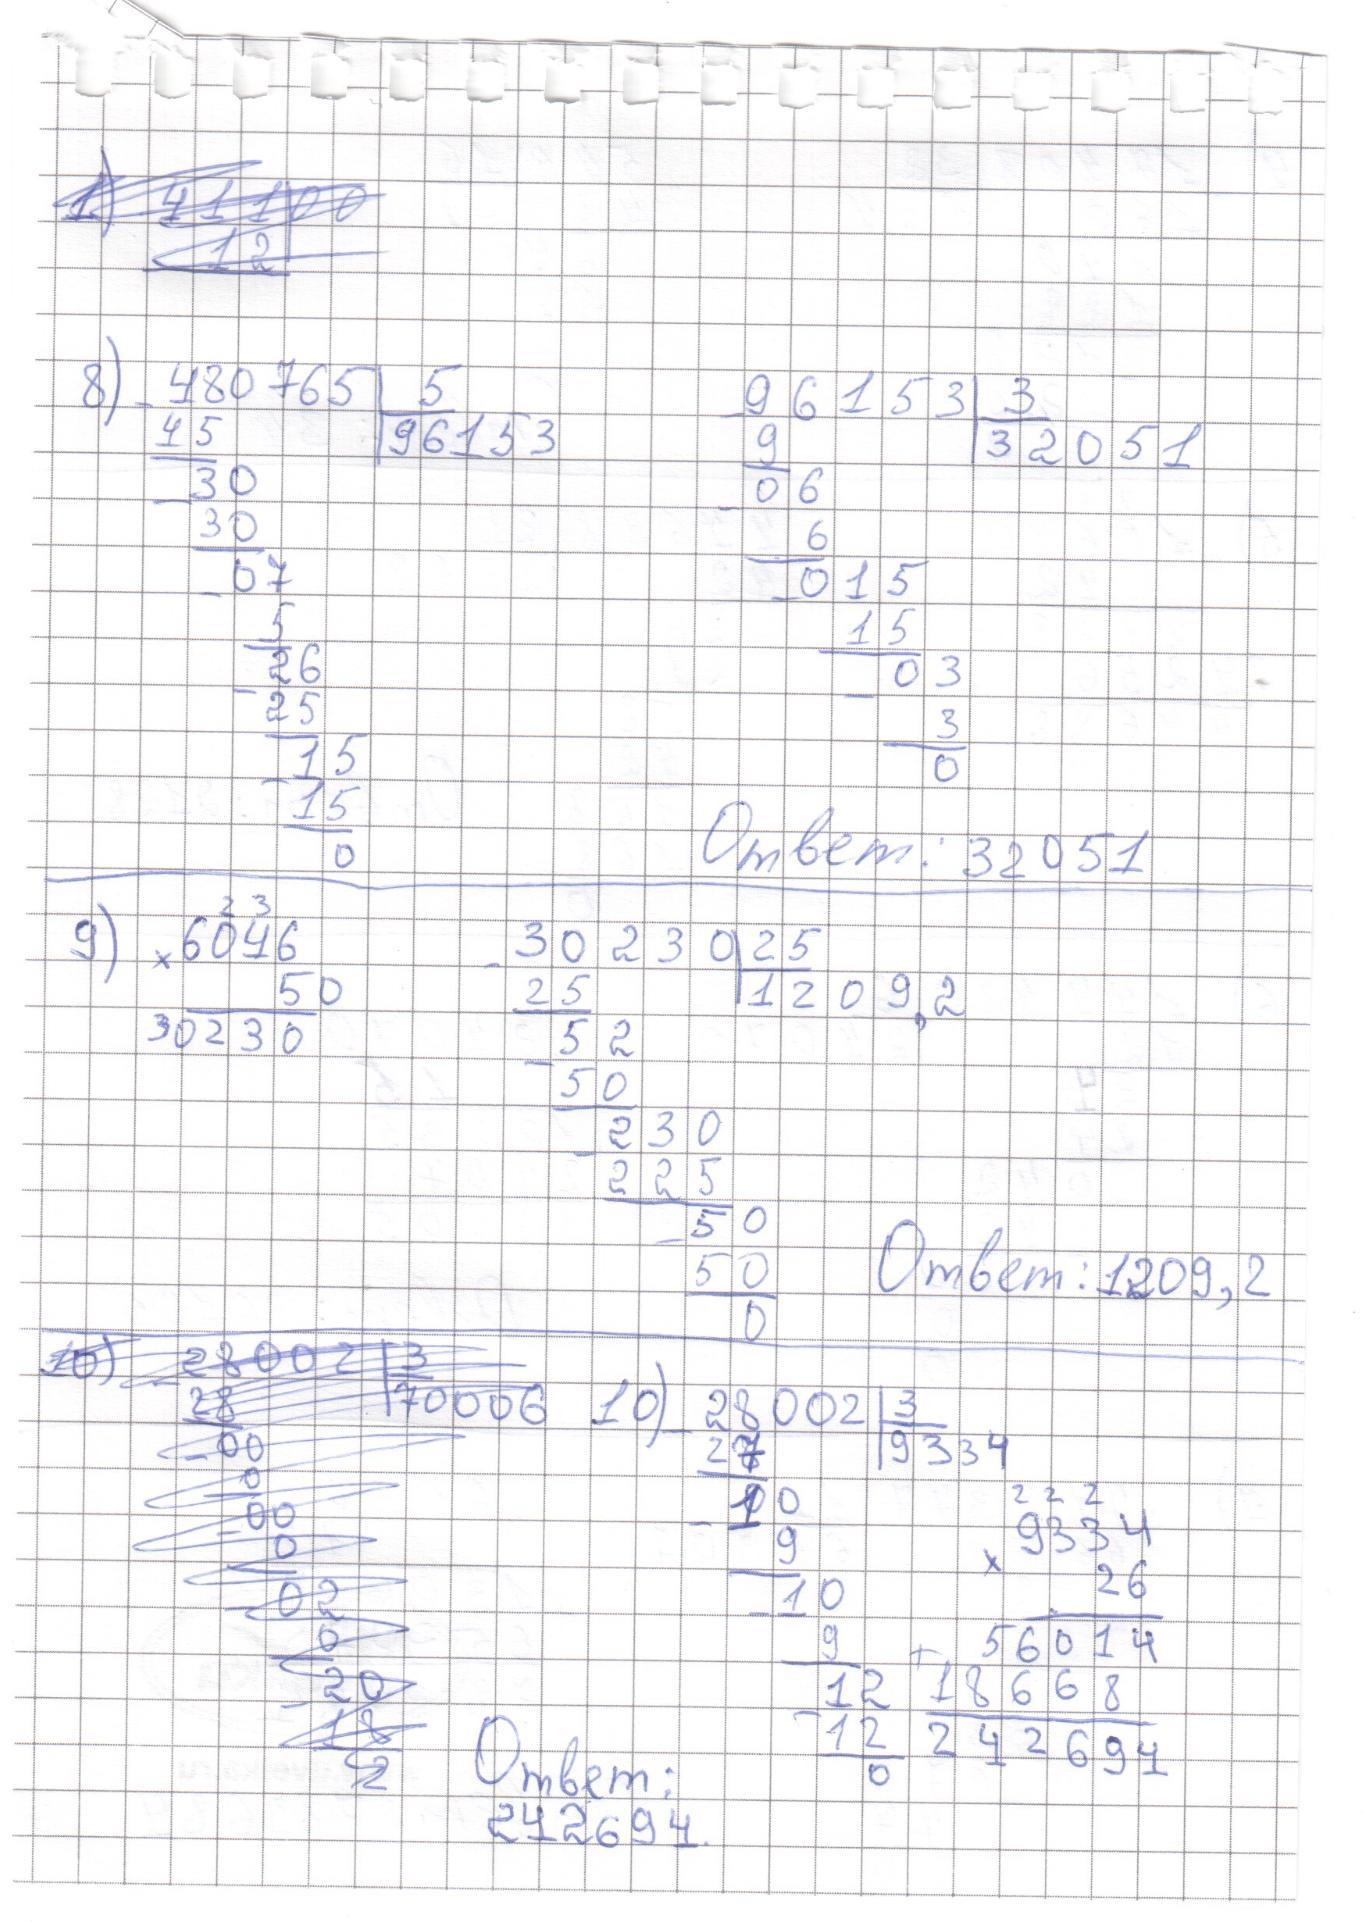 1) 41100
12
8) - 480765 | 5
45 | 96153
- 30
30
- 07
5
- 26
25
- 15
15
0
- 96153 | 3
9 | 32051
- 06
6
- 015
15
- 03
3
0
Ответ: 32051
9) 2 3
× 6046
50
30230
- 30230 | 25
25 | 1209,2
- 52
50
- 230
225
- 50
50
0
Ответ: 1209,2
10) - 28002 | 3
28 | 70006
- 00
0
- 00
0
- 02
0
- 20
18
2
10) - 28002 | 3
27 | 9334
- 10
9
- 10
9
- 12
12
0
2 2 2
× 9334
26
+ 56014
18668
242694
Ответ:
242694.